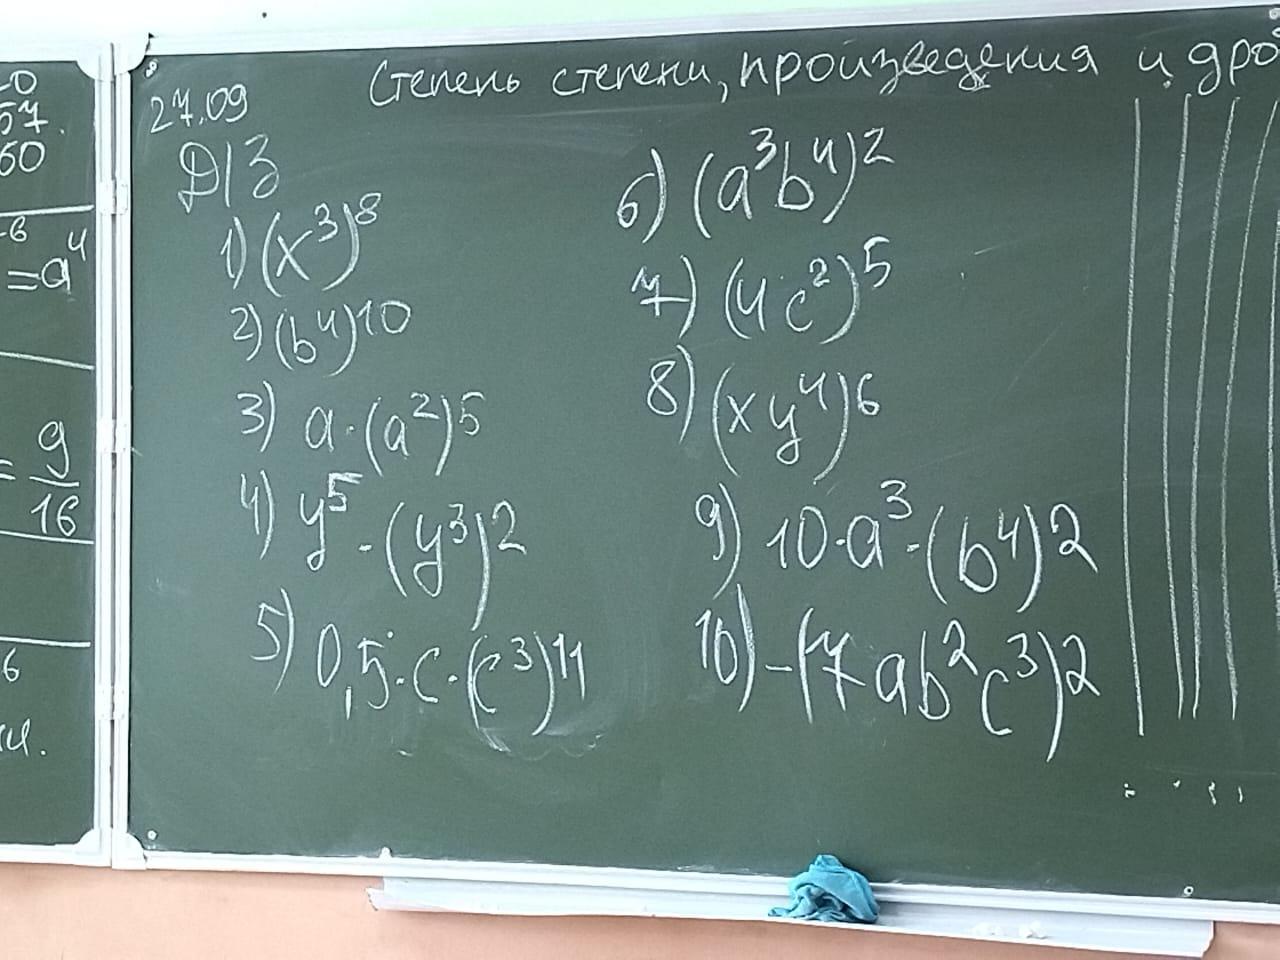 20
57.
60
-6
= a⁴
= 9/16
6
27.09
Степень степени, произведения и дро
Д/З
1) (x³)⁸
2) (b⁴)¹⁰
3) a · (a²)⁵
4) y⁵ · (y³)²
5) 0,5 · c · (c³)¹¹
6) (a³b⁴)²
7) (4c²)⁵
8) (xy⁴)⁶
9) 10 · a³ · (b⁴)²
10) -(7ab²c³)²